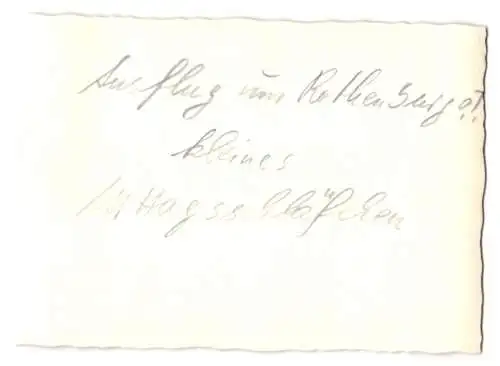 Ausflug um Rothenburg o.T.
kleines
Mittagsschläfchen